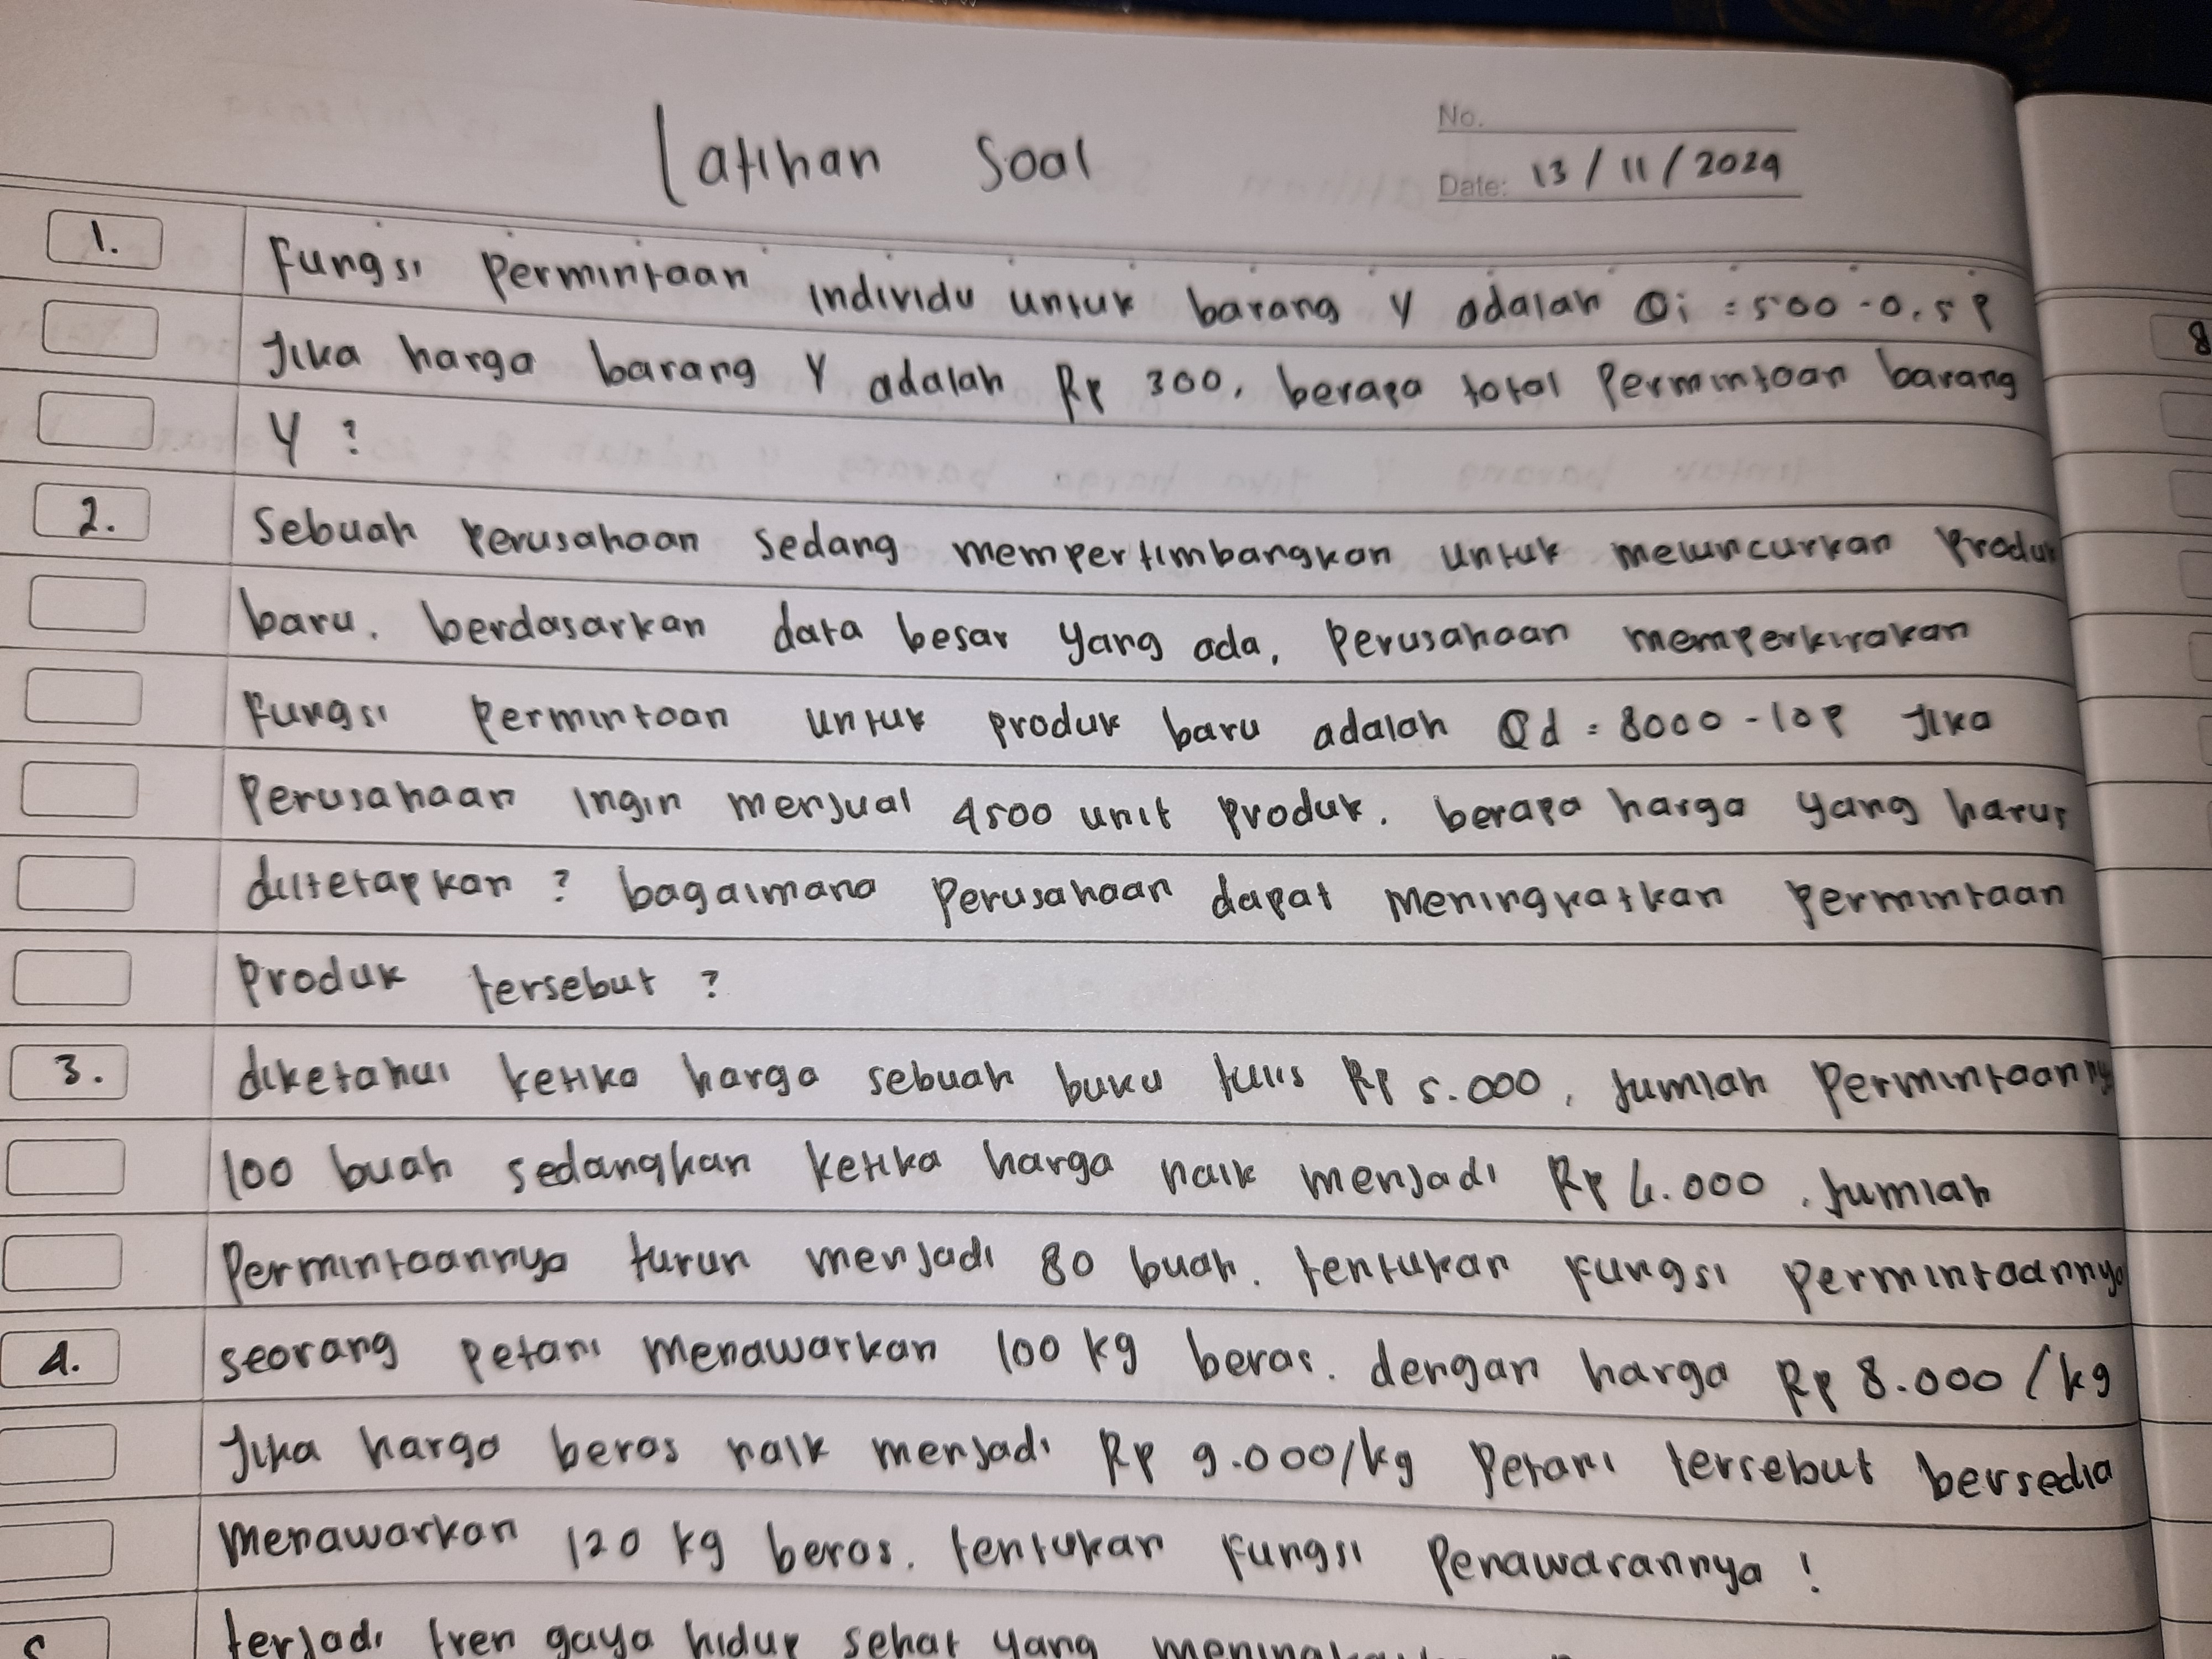 Latihan Soal
No.
Date: 13 / 11 / 2024
1. Fungsi Permintaan individu untuk barang Y adalah Qi = 500 - 0,5 P
Jika harga barang Y adalah Rp 300, berapa total Permintaan barang
Y ?
2. Sebuah Perusahaan sedang mempertimbangkan untuk meluncurkan Produk
baru. berdasarkan data besar yang ada, Perusahaan memperkirakan
Fungsi Permintaan untuk produk baru adalah Qd = 8000 - 10P Jika
Perusahaan ingin menjual 4500 unit Produk. berapa harga yang harus
ditetapkan ? bagaimana Perusahaan dapat Meningkatkan Permintaan
Produk tersebut ?
3. diketahui ketika harga sebuah buku tulis Rp 5.000, Jumlah Permintaannya
100 buah sedangkan ketika harga naik menjadi Rp 6.000. Jumlah
Permintaannya turun menjadi 80 buah. tentukan Fungsi Permintaannya
4. seorang Petani Menawarkan 100 kg beras. dengan harga Rp 8.000 / kg
Jika harga beras naik menjadi Rp 9.000/kg Petani tersebut bersedia
Menawarkan 120 kg beras. tentukan Fungsi Penawarannya !
terjadi tren gaya hidup sehat yang
8